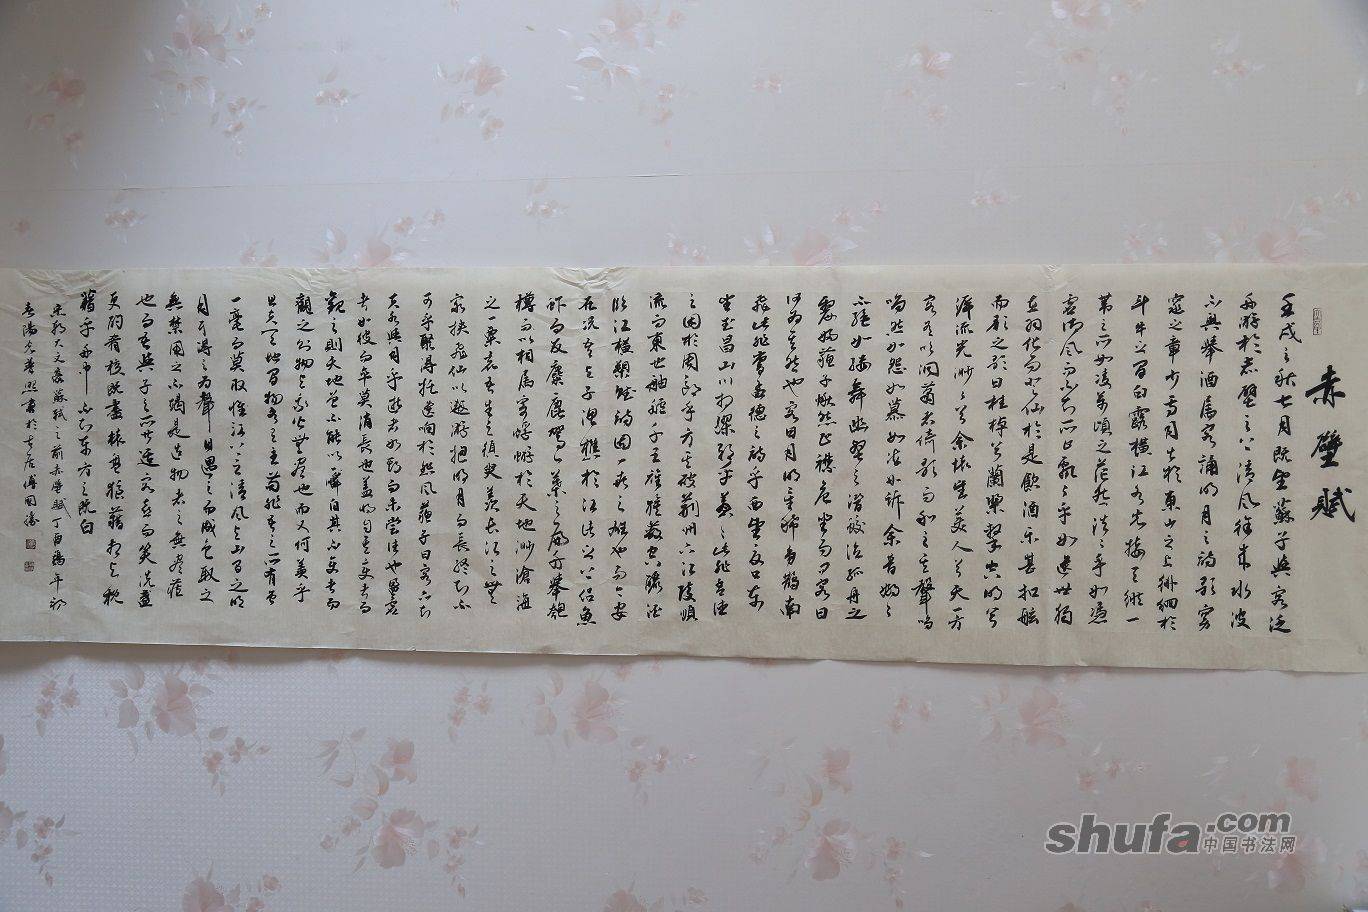 赤壁賦
壬戌之秋七月既望蘇子與客泛
舟游於赤壁之下清風徐來水波
不興舉酒屬客誦明月之詩歌窈
窕之章少焉月出於東山之上徘徊於
斗牛之間白露橫江水光接天縱一
葦之所如凌萬頃之茫然浩浩乎如憑
虛御風而不知所止飄飄乎如遺世獨
立羽化而登仙於是飲酒樂甚扣舷
而歌之歌曰桂棹兮蘭槳擊空明兮
溯流光渺渺兮余懷望美人兮天一方
客有吹洞簫者倚歌而和之其聲嗚
嗚然如怨如慕如泣如訴余音嫋嫋
不絕如縷舞幽壑之潛蛟泣孤舟之
嫠婦蘇子愀然正襟危坐而問客曰
何為其然也客曰月明星稀烏鵲南
飛此非曹孟德之詩乎西望夏口東
望武昌山川相繆鬱乎蒼蒼此非孟德
之困於周郎乎方其破荊州下江陵順
流而東也舳艫千里旌旗蔽空釃酒
臨江橫槊賦詩固一世之雄也而今安
在況吾與子漁樵於江渚之上侶魚
蝦而友麋鹿駕一葉之扁舟舉匏
樽以相屬寄蜉蝣於天地渺滄海
之一粟哀吾生之須臾羨長江之無
窮挾飛仙以遨游抱明月而長終知不
可乎驟得托遺響於悲風蘇子曰客亦知
夫水與月乎逝者如斯而未嘗往也盈虛
者如彼而卒莫消長也蓋將自其變者而
觀之則天地曾不能以一瞬自其不變者而
觀之則物與我皆無盡也而又何羨乎
且夫天地之間物各有主苟非吾之所有雖
一毫而莫取惟江上之清風與山間之明
月耳得之為聲目遇之而成色取之
無禁用之不竭是造物者之無盡藏
也而吾與子之所共適客喜而笑洗盞
更酌肴核既盡杯盤狼藉相與枕
藉乎舟中不知東方之既白
宋朝大文豪蘇軾之前赤壁賦丁酉端午初
書於
shufa.com
中国书法网